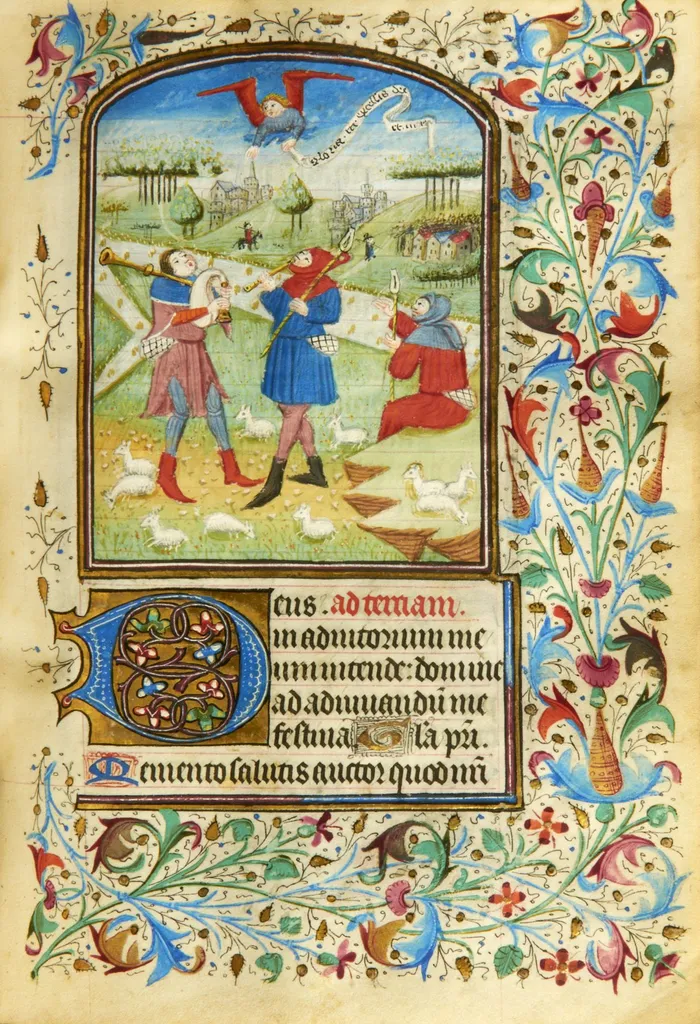 Gloria in excelsis deo
et in terra
Deus. ad terciam.
in adiutorium me
um intende: domine
ad adiuuandū me
festina. G̅la pr̄i.
Memento salutis auctor quod nr̄i